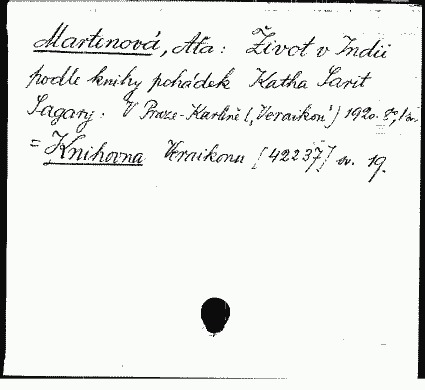 Martinová, Áťa: Život v Indii
podle knihy pohádek Katha Sarit
Sagary. V Praze-Karlíně („Veraikon“) 1920. 8°, 1 sv.
= Knihovna Veraikonu [42237] sv. 19.